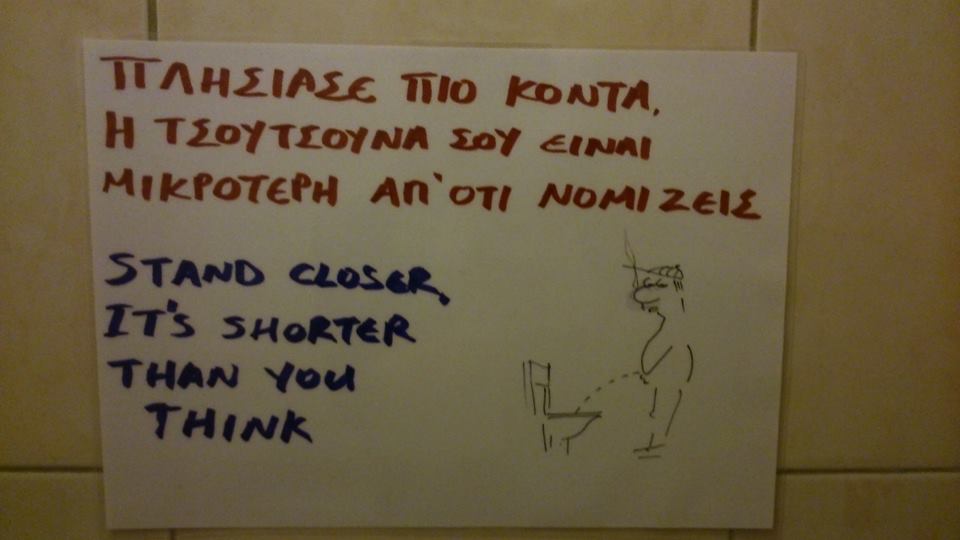 ΠΛΗΣΙΑΣΕ ΠΙΟ ΚΟΝΤΑ,
Η ΤΣΟΥΤΣΟΥΝΑ ΣΟΥ ΕΙΝΑΙ
ΜΙΚΡΟΤΕΡΗ ΑΠ'ΟΤΙ ΝΟΜΙΖΕΙΣ
STAND CLOSER,
IT'S SHORTER
THAN YOU
THINK